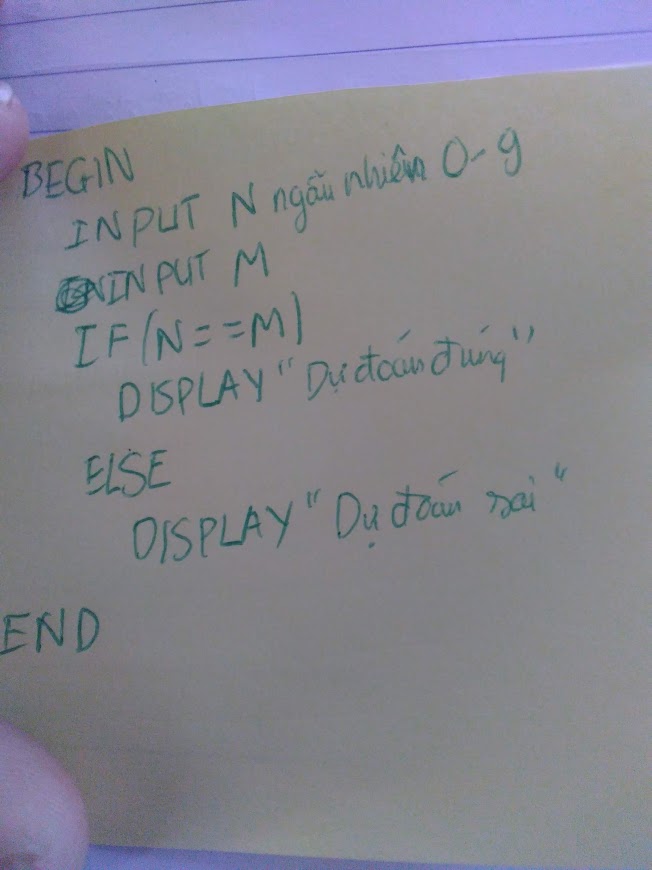 BEGIN
INPUT N ngẫu nhiên 0-9
INPUT M
IF(N==M)
DISPLAY "Dự đoán đúng"
ELSE
DISPLAY "Dự đoán sai"
END